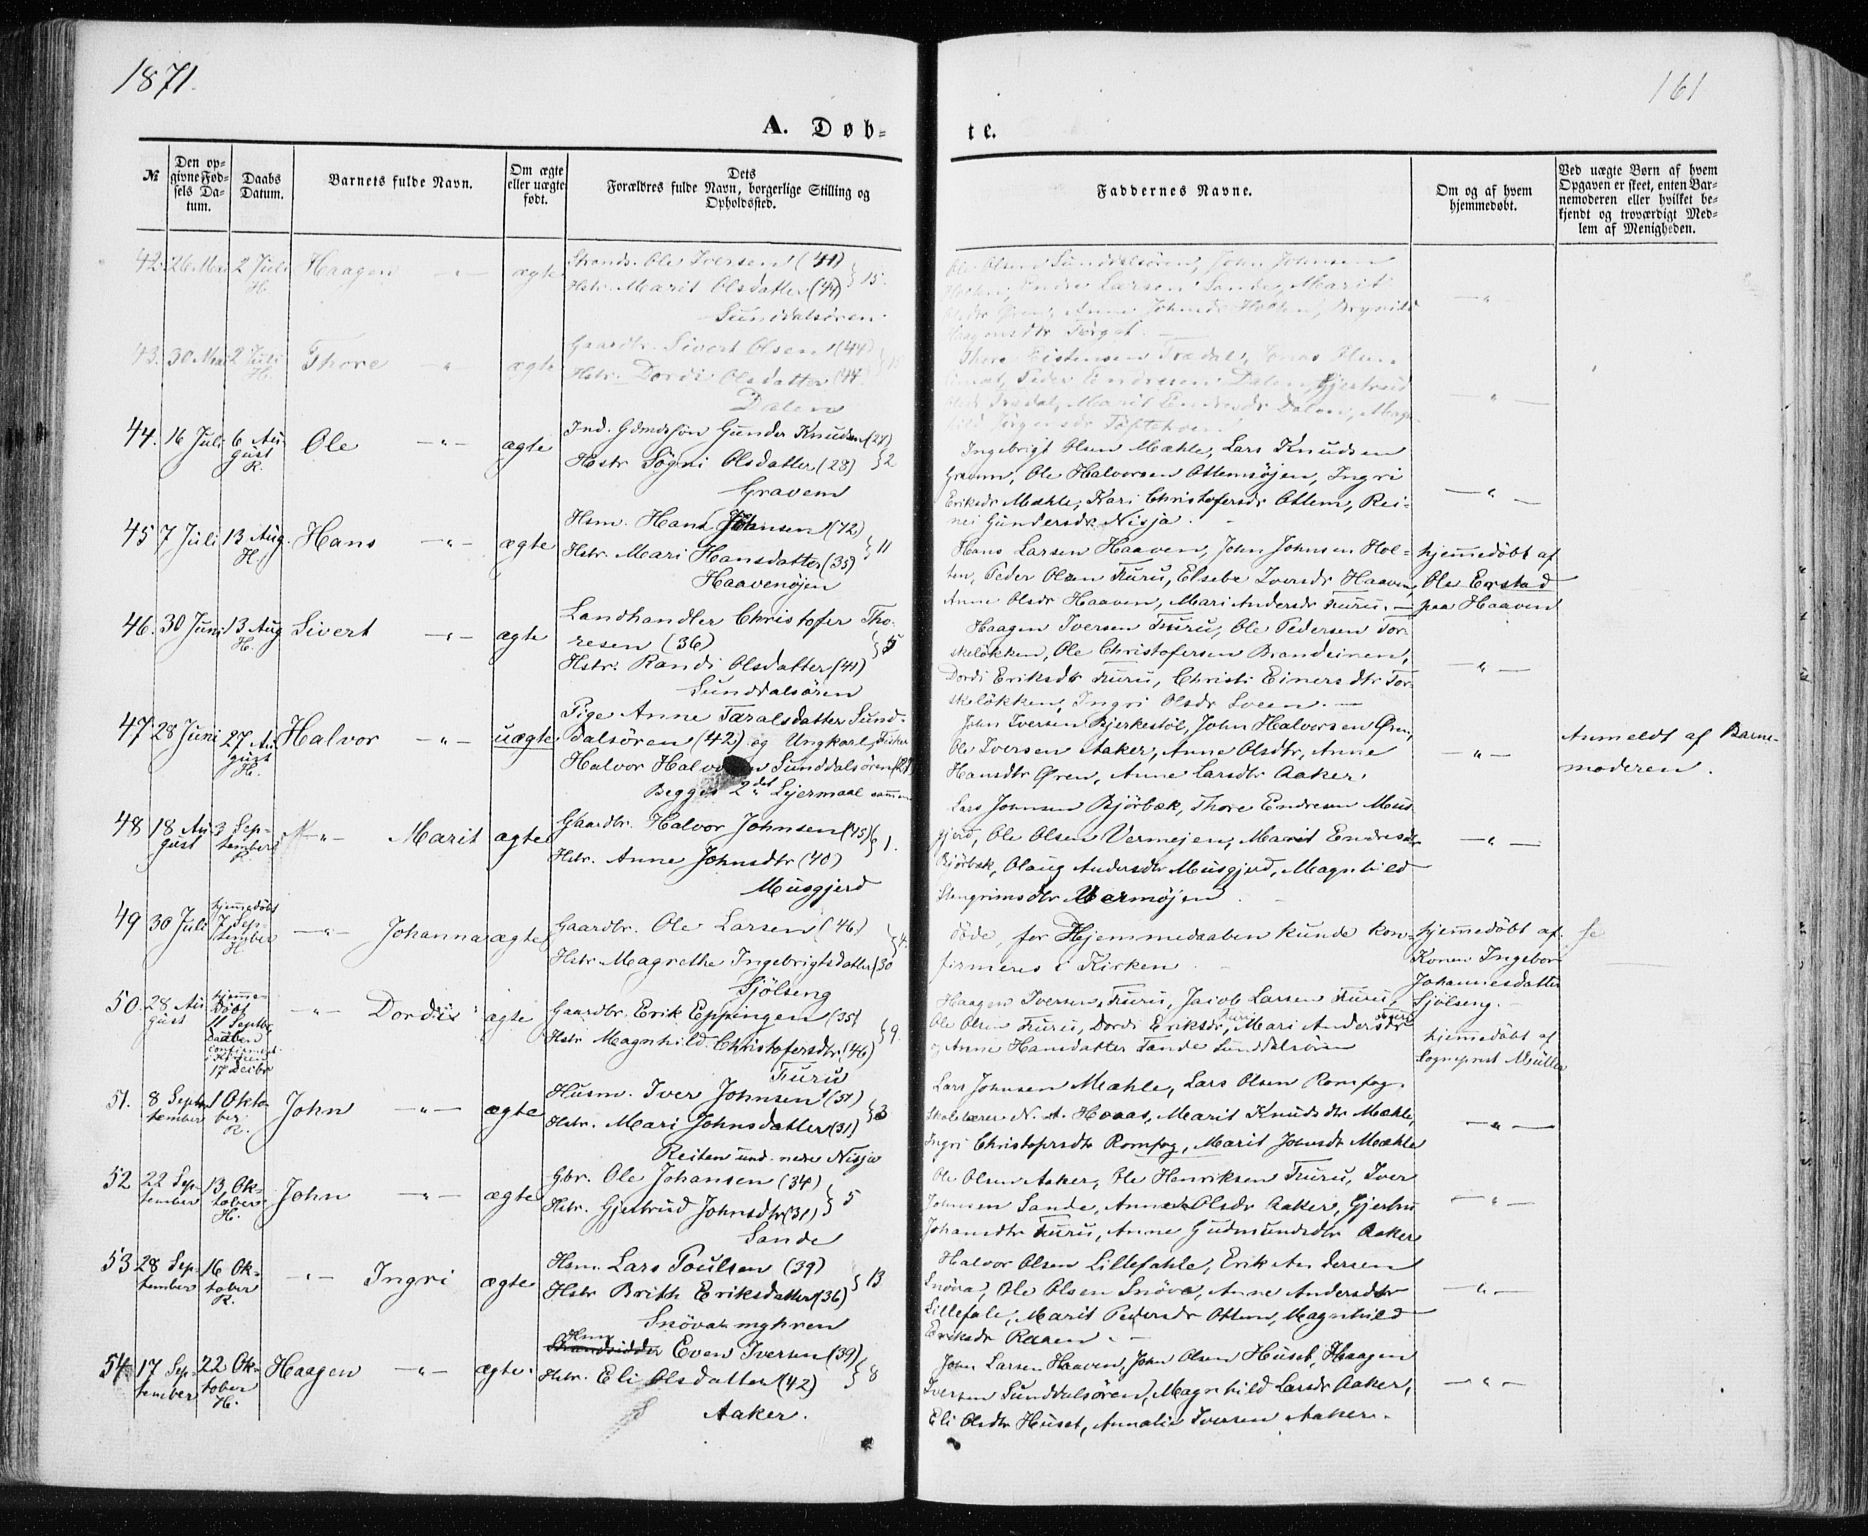 1871.
161
A. Døb-
te.
№
Den op-
givne Fød-
sels Da-
tum.
Daabs
Datum.
Barnets fulde Navn.
Om ægte
eller uægte
født.
Dets
Forældres fulde Navn, borgerlige Stilling og
Opholdssted.
Faddernes Navne.
Om og af hvem
hjemmedøbt.
Ved uægte Børn af hvem
Opgaven er skeet, enten Bar-
nemoderen eller hvilket be-
kjendt og troværdigt Med-
lem af Menigheden.
42. 26 Mai 2 Juli H. Haagen — " — ægte
Strands. Ole Iversen (41)
Hstr. Marit Olsdatter (44) } 15.
Sunddalsören.
Ole Olsen Sunddalsören, John Johnsen
Holten, Endre Larsen Sande, Marit
Olsdr Øren, Anne Johnsdr Holten, Brynild
— " —
43. 30 Mai 2 Juli H. Thore — " — ægte
Gaardbr. Sivert Olsen (44)
Hstr. Dordi Olsdatter (44)
Dalen
Peder Endresen Dalen, Gjertrud
Olsdr Trædal, Marit Endresdr Dalen,
— " —
44. 16 Juli 6 Au-
gust R. Ole — " — ægte
Ind. Gdmdssön Gunder Knudsen (27)
Hstr Sögni Olsdatter (28) } 2
Gravem
Ingebrigt Olsen Mæhle, Lars Knudsen
Gravem, Ole Halvorsen Ottemsøjen, Ingri
Eriksdr Mæhle, Kari Christofersdr Ottem, Rei-
nei Gundersdr Nisja.
— " —
45 7 Juli 13 Aug. H. Hans — " — ægte
Hsm. Hans Johnsen (42)
Hstr. Mari Hansdatter (35) } 11
Haavenöjen
Hans Larsen Haaven, John Johnsen Hol-
ten, Peder Olsen Furu, Elsebe Iversdr Haaven,
Anne Olsdr Haaven, Mari Andersdr Furu. —
hjemmedöbt af
Ole Erstad
paa Haaven
46. 30 Juni 13 Aug H. Sivert — " — ægte
Landhandler Christofer Tho-
resen (36)
Hstr. Randi Olsdatter (41) } 5
Sunddalsören
Haagen Iversen Furu, Ole Pedersen Tor-
skelökken, Ole Christofersen Brandeinen,
Dordi Eriksdr Furu, Christi Einersdtr Tor-
skelökken, Ingri Olsdr Sveen. —
— " —
47 28 Juni 27 Au-
gust H. Halvor — " — uægte
Pige Anne Taralsdatter Sund-
dalsören (42) og Ungkarl, Fisker
Halvor Halvorsen Sunddalsören
Begges 2det Lejermaal sammen
John Iversen Bjerkestöl, John Halvorsen Øren,
Ole Iversen Aaker, Anne Olsdtr, Anne
Hansdtr Øren, Anne Larsdtr Aaker.
— " —
Anmeldt af Barne-
moderen.
48 18 Au-
gust 3 Sep-
tember R. — " — Marit ægte
Gaardbr. Halvor Johnsen (45)
Hstr. Anne Johnsdtr (40) } 1.
Musgjerd
Lars Johnsen Björbæk, Thore Endresen Mus-
gjerd, Ole Olsen Vermejen, Marit Endresdtr
Bjørbæk, Olaug Andersdtr Musgjerd, Magnhild
Stengrimsdtr Vermöjen
— " —
49 30 Juli hjemmedöbt
7 Sep-
tember
H. — " — Johanna ægte
Gaardbr. Ole Larsen (46)
Hstr Magrethe Ingebrigtsdatter (30 } 4.
Sjölseng
döde, för Hjemmedaaben kunde kon-
firmeres i Kirken
hjemmedöbt af
Konen Ingebor
Johannesdatter
Sjölseng.
50. 28 Au-
gust hjemme-
döbt
11 Septbr
Daaben
confirmed.
i Kirken
17 Decbr — " — Dordi ægte
Gaardbr. Erik Eppingen (35)
Hstr Magnhild Christofersdtr. (46) } 9.
Furu
Haagen Iversen Furu, Jacob Larsen Furu,
Ole Olsen Furu, Dordi Eriksdr Furu, Mari Andersdtr
og Anne Hansdatter Tande Sunddalsören
hjemmedöbt af
Sogneprest Müller
51. 8 Sep-
tember 1 Okto-
ber R. John — " — ægte
Husm. Iver Johnsen (31)
Hstr. Mari Johnsdatter (31) } 3
Reiten und. nedre Nisja
Lars Johnsen Mæhle, Lars Olsen Romfog,
Skolelærer N. A. Hovaas, Marit Knudsdtr Mæhle,
Ingri Christofersdtr Romfog, Marit Johnsdr Mæhle
— " —
52 22 Sep-
tember 13 Ok-
tober H. John — " — ægte
Gbr. Ole Johansen (34)
Hstr. Gjertrud Johnsdtr (31) } 5
Sande
Ole Olsen Aaker, Ole Henriksen Furu, Iver
Johnsen Sande, Anne Olsdr Aaker, Gjertru
Johansdtr Furu, Anne Gudmundsdtr Aaker
— " —
53 28 Sep-
tember 16 Ok-
tober R. — " — Ingri ægte
Hsm. Lars Poulsen (39)
Hstr Brith Eriksdatter (36) } 13
Snövasmyhren
Halvor Olsen Lillefahle, Erik Andersen
Snöva, Ole Olsen Snöva, Anne Andersdtr
Lillefale, Marit Pedersdr Ottem, Magnhild
Eriksdr Raaen. —
— " —
54 17 Sep-
tember 22 Ok-
tober H. Haagen — " — ægte
Hsm Even Iversen (39)
Hstr. Eli Olsdatter (42) } 8
Aaker.
John Larsen Haaven, John Olsen Huset, Haagen
Iversen Sunddalsören, Magnhild Larsdr Aaker,
Eli Olsdtr Huset, Annalie Iversen Aaker.
— " —